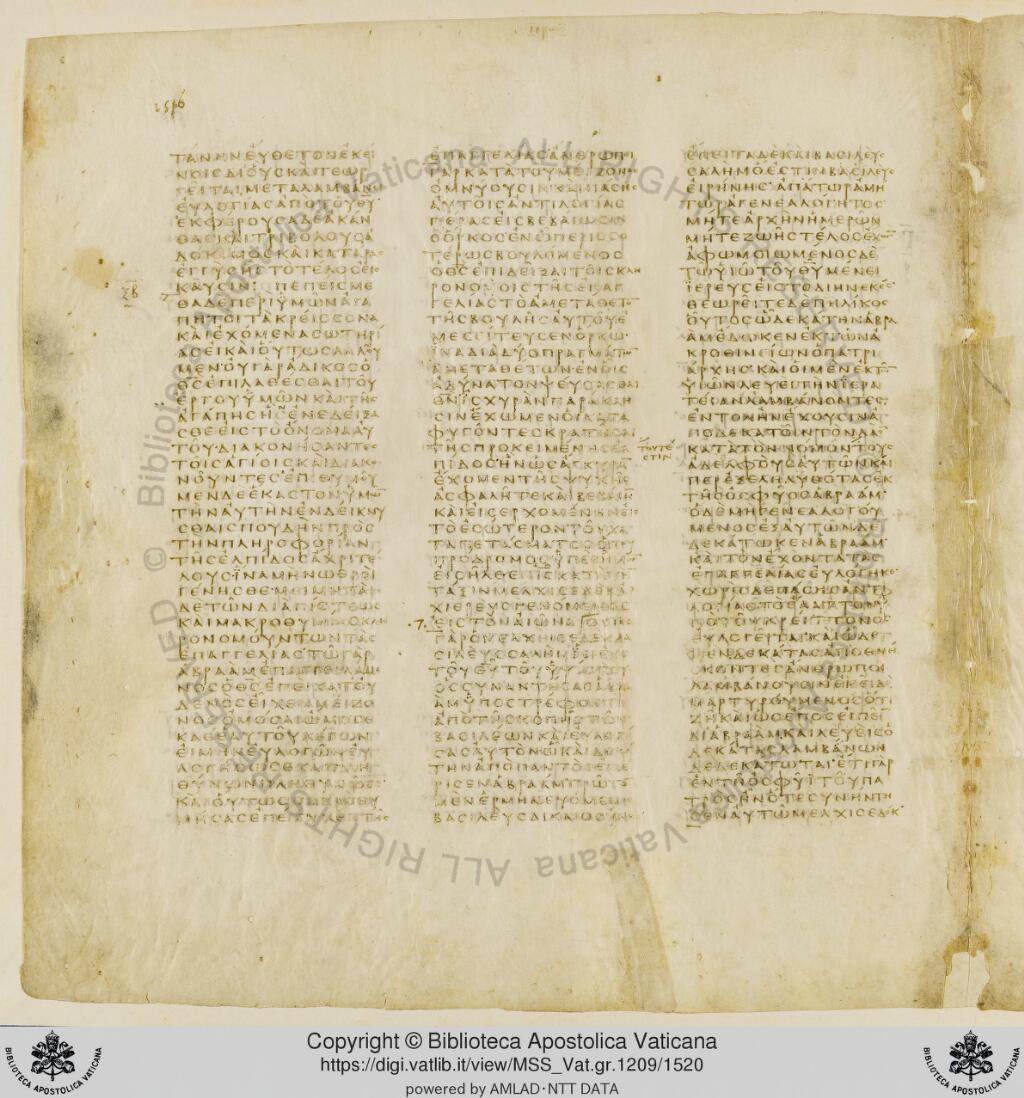 ΤΑΝΗΝΕΥΘΕΤΟΝΕΚΕΙ
ΝΟΙϹΔΙΟΥϹΚΑΙΓΕΩΡ
ΓΕΙΤΑΙΜΕΤΑΛΑΜΒΑΝΕΙ
ΕΥΛΟΓΙΑϹΑΠΟΤΟΥΘΥ
ΕΚΦΕΡΟΥϹΑΔΕΑΚΑΝ
ΘΑϹΚΑΙΤΡΙΒΟΛΟΥϹΑ
ΔΟΚΙΜΟϹΚΑΙΚΑΤΑΡΑϹ
ΕΓΓΥϹΗϹΤΟΤΕΛΟϹΕΙϹ
ΚΑΥϹΙΝ ΠΕΠΕΙϹΜΕ
ΘΑΔΕΠΕΡΙΥΜΩΝΑΓΑ
ΠΗΤΟΙΤΑΚΡΕΙϹϹΟΝΑ
ΚΑΙΕΧΟΜΕΝΑϹΩΤΗΡΙ
ΑϹΕΙΚΑΙΟΥΤΩϹΛΑΛΟΥ
ΜΕΝΟΥΓΑΡΑΔΙΚΟϹΟ
ΘϹΕΠΙΛΑΘΕϹΘΑΙΤΟΥ
ΕΡΓΟΥΥΜΩΝΚΑΙΤΗϹ
ΑΓΑΠΗϹΗϹΕΝΕΔΕΙΞΑ
ϹΘΕΕΙϹΤΟΟΝΟΜΑΑΥ
ΤΟΥΔΙΑΚΟΝΗϹΑΝΤΕϹ
ΤΟΙϹΑΓΙΟΙϹΚΑΙΔΙΑΚΟ
ΝΟΥΝΤΕϹΕΠΙΘΥΜΟΥ
ΜΕΝΔΕΕΚΑϹΤΟΝΥΜΩ̅
ΤΗΝΑΥΤΗΝΕΝΔΕΙΚΝΥ
ϹΘΑΙϹΠΟΥΔΗΝΠΡΟϹ
ΤΗΝΠΛΗΡΟΦΟΡΙΑΝ
ΤΗϹΕΛΠΙΔΟϹΑΧΡΙΤΕ
ΛΟΥϹΙΝΑΜΗΝΩΘΡΟΙ
ΓΕΝΗϹΘΕΜΙΜΗΤΑΙ
ΔΕΤΩΝΔΙΑΠΙϹΤΕΩϹ
ΚΑΙΜΑΚΡΟΘΥΜΙΑϹΚΛΗ
ΡΟΝΟΜΟΥΝΤΩΝΤΑϹ
ΕΠΑΓΓΕΛΙΑϹΤΩΓΑΡ
ΑΒΡΑΑΜΕΠΑΓΓΕΙΛΑΜΕ
ΝΟϹΟΘϹΕΠΕΙΚΑΤΟΥ
ΔΕΝΟϹΕΙΧΕΝΜΕΙΖΟ
ΝΟϹΟΜΟϹΑΙΩΜΟϹΕ
ΚΑΘΕΑΥΤΟΥΛΕΓΩΝ
ΕΙΜΗΝΕΥΛΟΓΩΝΕΥ
ΛΟΓΗϹΩϹΕΚΑΙΠΛΗ
ΘΥΝΩΝΠΛΗΘΥΝΩϹΕ
ΚΑΙΟΥΤΩϹΜΑΚΡΟΘΥ
ΜΗϹΑϹΕΠΕΤΥΧΕΤΗϹ
ΕΠΑΓΓΕΛΙΑϹΑΝΘΡΩΠΟΙ
ΓΑΡΚΑΤΑΤΟΥΜΕΙΖΟΝΟϹ
ΟΜΝΥΟΥϹΙΝΚΑΙΠΑϹΗϹ
ΑΥΤΟΙϹΑΝΤΙΛΟΓΙΑϹ
ΠΕΡΑϹΕΙϹΒΕΒΑΙΩϹΙΝ
ΟΟΡΚΟϹΕΝΩΠΕΡΙϹϹΟ
ΤΕΡΩϹΒΟΥΛΟΜΕΝΟϹ
ΟΘϹΕΠΙΔΕΙΞΑΙΤΟΙϹΚΛΗ
ΡΟΝΟΜΟΙϹΤΗϹΕΠΑΓ
ΓΕΛΙΑϹΤΟΑΜΕΤΑΘΕΤΟ̅
ΤΗϹΒΟΥΛΗϹΑΥΤΟΥΕ
ΜΕϹΙΤΕΥϹΕΝΟΡΚΩ
ΙΝΑΔΙΑΔΥΟΠΡΑΓΜΑΤΩ̅
ΑΜΕΤΑΘΕΤΩΝΕΝΟΙϹ
ΑΔΥΝΑΤΟΝΨΕΥϹΑϹΘΑΙ
ΘΝΙϹΧΥΡΑΝΠΑΡΑΚΛΗ
ϹΙΝΕΧΩΜΕΝΟΙΚΑΤΑ
ΦΥΓΟΝΤΕϹΚΡΑΤΗϹΑΙ
ΤΗϹΠΡΟΚΕΙΜΕΝΗϹΕΛ
ΠΙΔΟϹΗΝΩϹΑΓΚΥΡΑΝ
ΕΧΟΜΕΝΤΗϹΨΥΧΗϹ
ΑϹΦΑΛΗΤΕΚΑΙΒΕΒΑΙΑΝ
ΚΑΙΕΙϹΕΡΧΟΜΕΝΗΝΕΙϹ
ΤΟΕϹΩΤΕΡΟΝΤΟΥΚΑ
ΤΑΠΕΤΑϹΜΑΤΟϹΟΠΟΥ
ΠΡΟΔΡΟΜΟϹΥΠΕΡΗΜΩ̅
ΕΙϹΗΛΘΕΝΙϹΚΑΤΑΤΗΝ
ΤΑΞΙΝΜΕΛΧΙϹΕΔΕΚΑΡ
ΧΙΕΡΕΥϹΓΕΝΟΜΕΝΟϹ
ΕΙϹΤΟΝΑΙΩΝΑΟΥΤΟϹ
ΓΑΡΟΜΕΛΧΙϹΕΔΕΚΒΑ
ϹΙΛΕΥϹϹΑΛΗΜΙΕΡΕΥϹ
ΤΟΥΘΥΤΟΥΥΨΙϹΤΟΥ
ΟϹϹΥΝΑΝΤΗϹΑϹΑΒΡΑ
ΑΜΥΠΟϹΤΡΕΦΟΝΤΙ
ΑΠΟΤΗϹΚΟΠΗϹΤΩΝ
ΒΑϹΙΛΕΩΝΚΑΙΕΥΛΟΓΗ
ϹΑϹΑΥΤΟΝΩΚΑΙΔΕΚΑ
ΤΗΝΑΠΟΠΑΝΤΩΝΕΜΕ
ΡΙϹΕΝΑΒΡΑΑΜΠΡΩΤΟ̅
ΜΕΝΕΡΜΗΝΕΥΟΜΕΝΟϹ
ΒΑϹΙΛΕΥϹΔΙΚΑΙΟϹΥΝΗϹ
ΕΠΕΙΤΑΔΕΚΑΙΒΑϹΙΛΕΥϹ
ϹΑΛΗΜΟΕϹΤΙΝΒΑϹΙΛΕΥϹ
ΕΙΡΗΝΗϹΑΠΑΤΩΡΑΜΗ
ΤΩΡΑΓΕΝΕΑΛΟΓΗΤΟϹ
ΜΗΤΕΑΡΧΗΝΗΜΕΡΩΝ
ΜΗΤΕΖΩΗϹΤΕΛΟϹΕΧΩ̅
ΑΦΩΜΟΙΩΜΕΝΟϹΔΕ
ΤΩΥΙΩΤΟΥΘΥΜΕΝΕΙ
ΙΕΡΕΥϹΕΙϹΤΟΔΙΗΝΕΚΕϹ
ΘΕΩΡΕΙΤΕΔΕΠΗΛΙΚΟϹ
ΟΥΤΟϹΩΔΕΚΑΤΗΝΑΒΡΑ
ΑΜΕΔΩΚΕΝΕΚΤΩΝΑ
ΚΡΟΘΙΝΕΙΩΝΟΠΑΤΡΙ
ΑΡΧΗϹΚΑΙΟΙΜΕΝΕΚΤΩ̅
ΥΙΩΝΛΕΥΕΙΤΗΝΙΕΡΑ
ΤΕΙΑΝΛΑΜΒΑΝΟΝΤΕϹ
ΕΝΤΟΛΗΝΕΧΟΥϹΙΝΑ
ΠΟΔΕΚΑΤΟΙΝΤΟΝΛΑΟ̅
ΚΑΤΑΤΟΝΝΟΜΟΝΤΟΥ
ΤΟΥΤΕ
ϹΤΙΝ
ΑΔΕΛΦΟΥϹΑΥΤΩΝΚΑΙ
ΠΕΡΕΞΕΛΗΛΥΘΟΤΑϹΕΚ
ΤΗϹΟϹΦΥΟϹΑΒΡΑΑΜ
ΟΔΕΜΗΓΕΝΕΑΛΟΓΟΥ
ΜΕΝΟϹΕΞΑΥΤΩΝΔΕ
ΔΕΚΑΤΩΚΕΝΑΒΡΑΑΜ
ΚΑΙΤΟΝΕΧΟΝΤΑΤΑϹ
ΕΠΑΓΓΕΛΙΑϹΕΥΛΟΓΗΚΕ
ΧΩΡΙϹΔΕΠΑϹΗϹΑΝΤΙ
ΛΟΓΙΑϹΤΟΕΛΑΤΤΟΝΥ
ΠΟΤΟΥΚΡΕΙΤΤΟΝΟϹ
ΕΥΛΟΓΕΙΤΑΙΚΑΙΩΔΕ
ΜΕΝΔΕΚΑΤΑϹΑΠΟΘΝΗ
ϹΚΟΝΤΕϹΑΝΘΡΩΠΟΙ
ΛΑΜΒΑΝΟΥϹΙΝΕΚΕΙΔΕ
ΜΑΡΤΥΡΟΥΜΕΝΟϹΟΤΙ
ΖΗΚΑΙΩϹΕΠΟϹΕΙΠΕΙ
ΔΙΑΒΡΑΑΜΚΑΙΛΕΥΕΙϹΟ
ΔΕΚΑΤΑϹΛΑΜΒΑΝΩΝ
ΔΕΔΕΚΑΤΩΤΑΙΕΤΙΓΑΡ
ΕΝΤΗΟϹΦΥΙΤΟΥΠΑ
ΤΡΟϹΗΝΟΤΕϹΥΝΗΝΤΗ
ϹΕΝΑΥΤΩΜΕΛΧΙϹΕΔΕΚ
Copyright © Biblioteca Apostolica Vaticana
https://digi.vatlib.it/view/MSS_Vat.gr.1209/1520
powered by AMLAD·NTT DATA
BIBLIOTECA APOSTOLICA VATICANA
BIBLIOTECA APOSTOLICA VATICANA